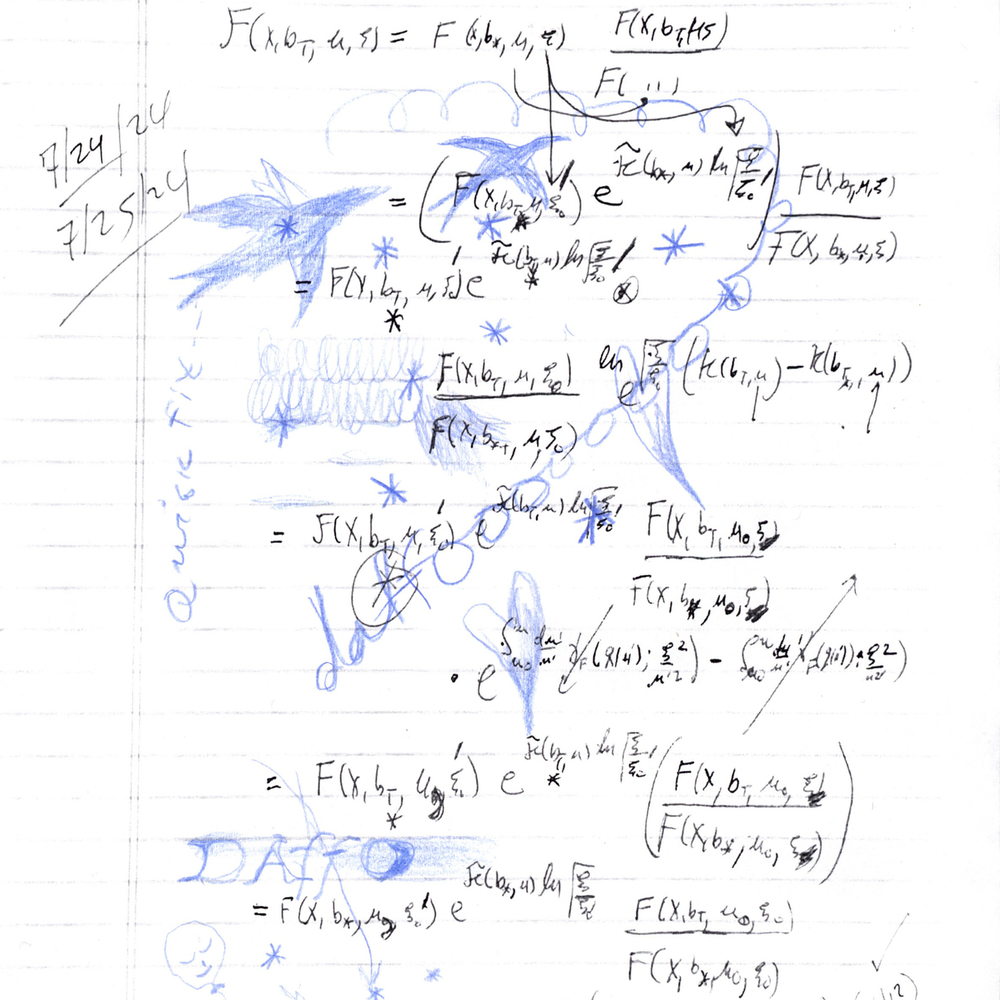 F(x, b_T, μ, ξ) = F(x, b_*, μ, ξ) F(x, b_T, μ, ξ)
F(...)
7/24/24
7/25/24
= (F(x, b_T*, μ, ξ_0') e^{K̃(b_*, μ) ln √(ξ/ξ_0')}) F(x, b_T, μ, ξ) / F(x, b_*, μ, ξ)
= F(x, b_T*, μ, ξ_0') e^{K̃(b_T*, μ) ln √(ξ/ξ_0')} ⊗
Quick Fix -
F(x, b_T, μ, ξ_0) / F(x, b_*T, μ, ξ_0) e^{ln √(ξ/ξ_0) (K(b_T, μ) - K(b_T*, μ))}
= F(x, b_T*, μ, ξ_0') e^{K̃(b_T, μ) ln √(ξ/ξ_0')} F(x, b_T, μ_0, ξ) / F(x, b_*, μ_0, ξ)
· e^{∫_{μ_0}^{μ} dμ'/μ' γ_F(g(μ'); ξ/μ'^2) - ∫_{μ_0}^{μ} dμ'/μ' γ_F(g(μ'); ξ/μ'^2)}
= F(x, b_T*, μ, ξ_0') e^{K̃(b_T*, μ) ln √(ξ/ξ_0')} (F(x, b_T, μ_0, ξ) / F(x, b_*, μ_0, ξ))
DAffO
= F(x, b_*, μ, ξ_0') e^{K̃(b_*, μ) ln √(ξ/ξ_0)} F(x, b_T, μ_0, ξ_0) / F(x, b_*T, μ_0, ξ_0)